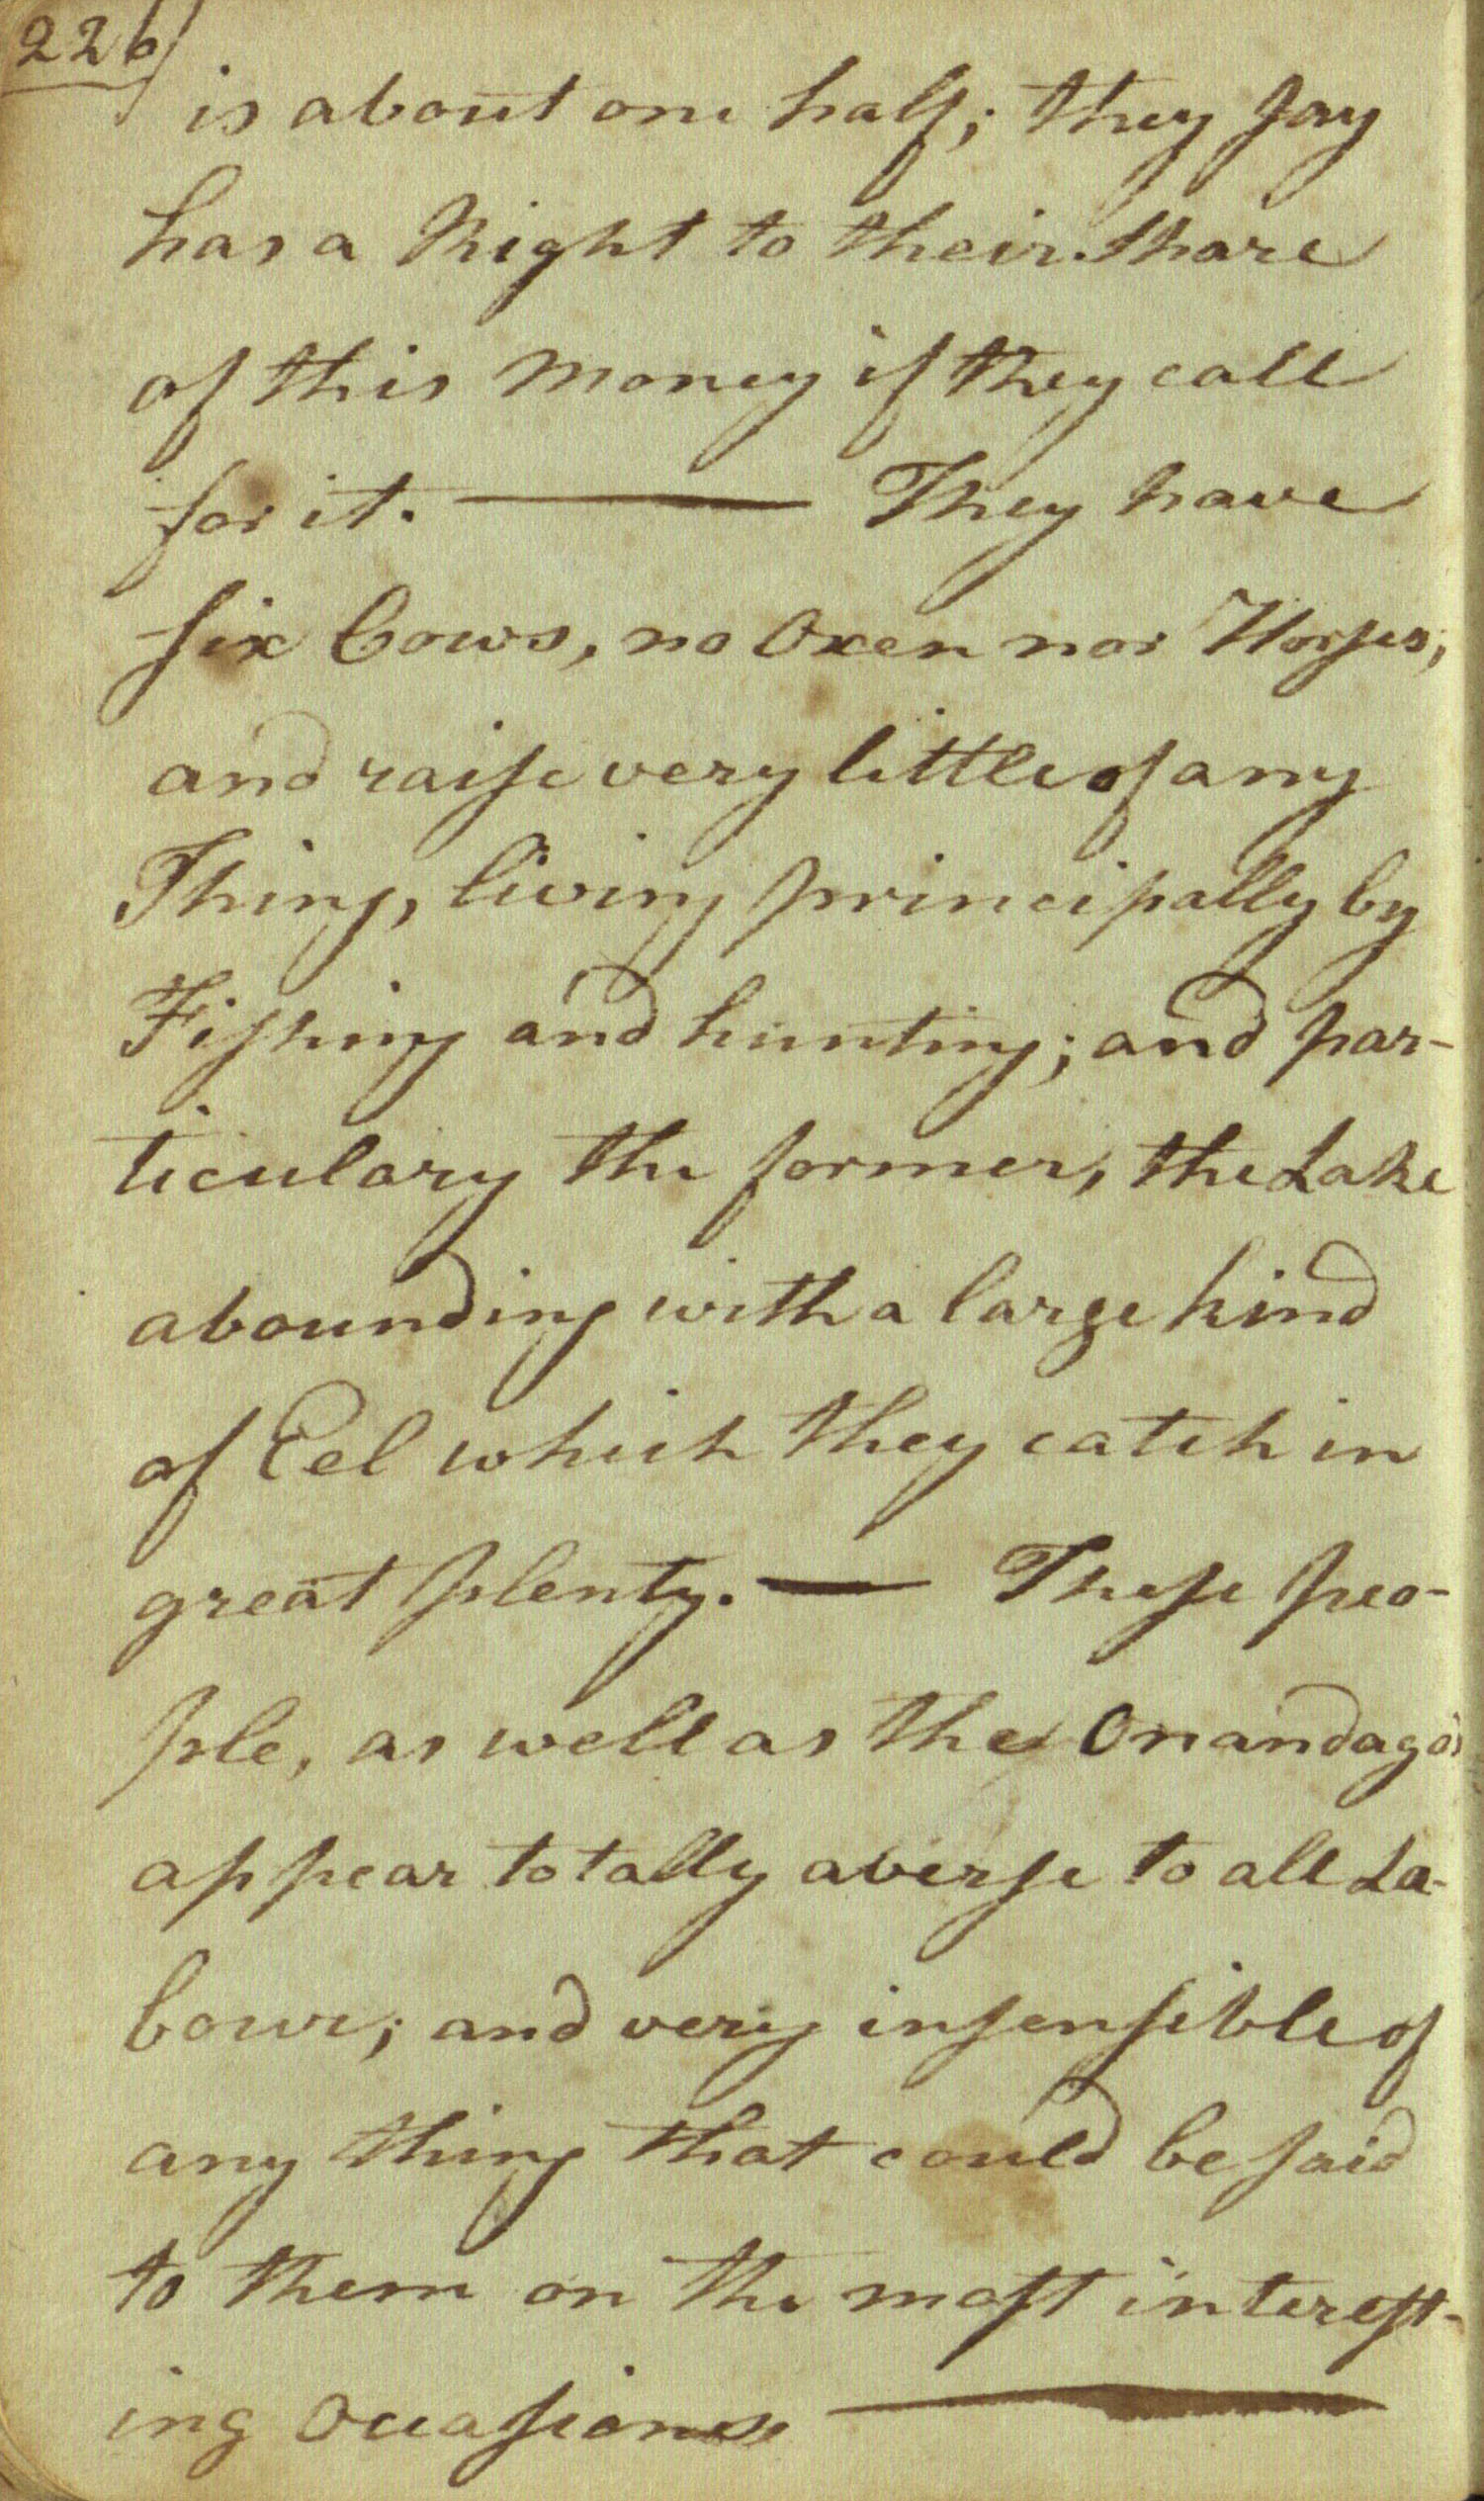 226
is about one half; they say
has a Right to their share
of this money if they call
for it. — They have
six Cows, no Oxen nor Horses;
and raise very little of any
Thing, living principally by
Fishing and hunting; and par-
ticulary the former, the Lake
abounding with a large kind
of Eel which they catch in
great plenty. — These peo-
ple, as well as the Onandagos
appear totally averse to all La-
bour; and very insensible of
any thing that could be said
to them on the most interest-
ing Occasions —